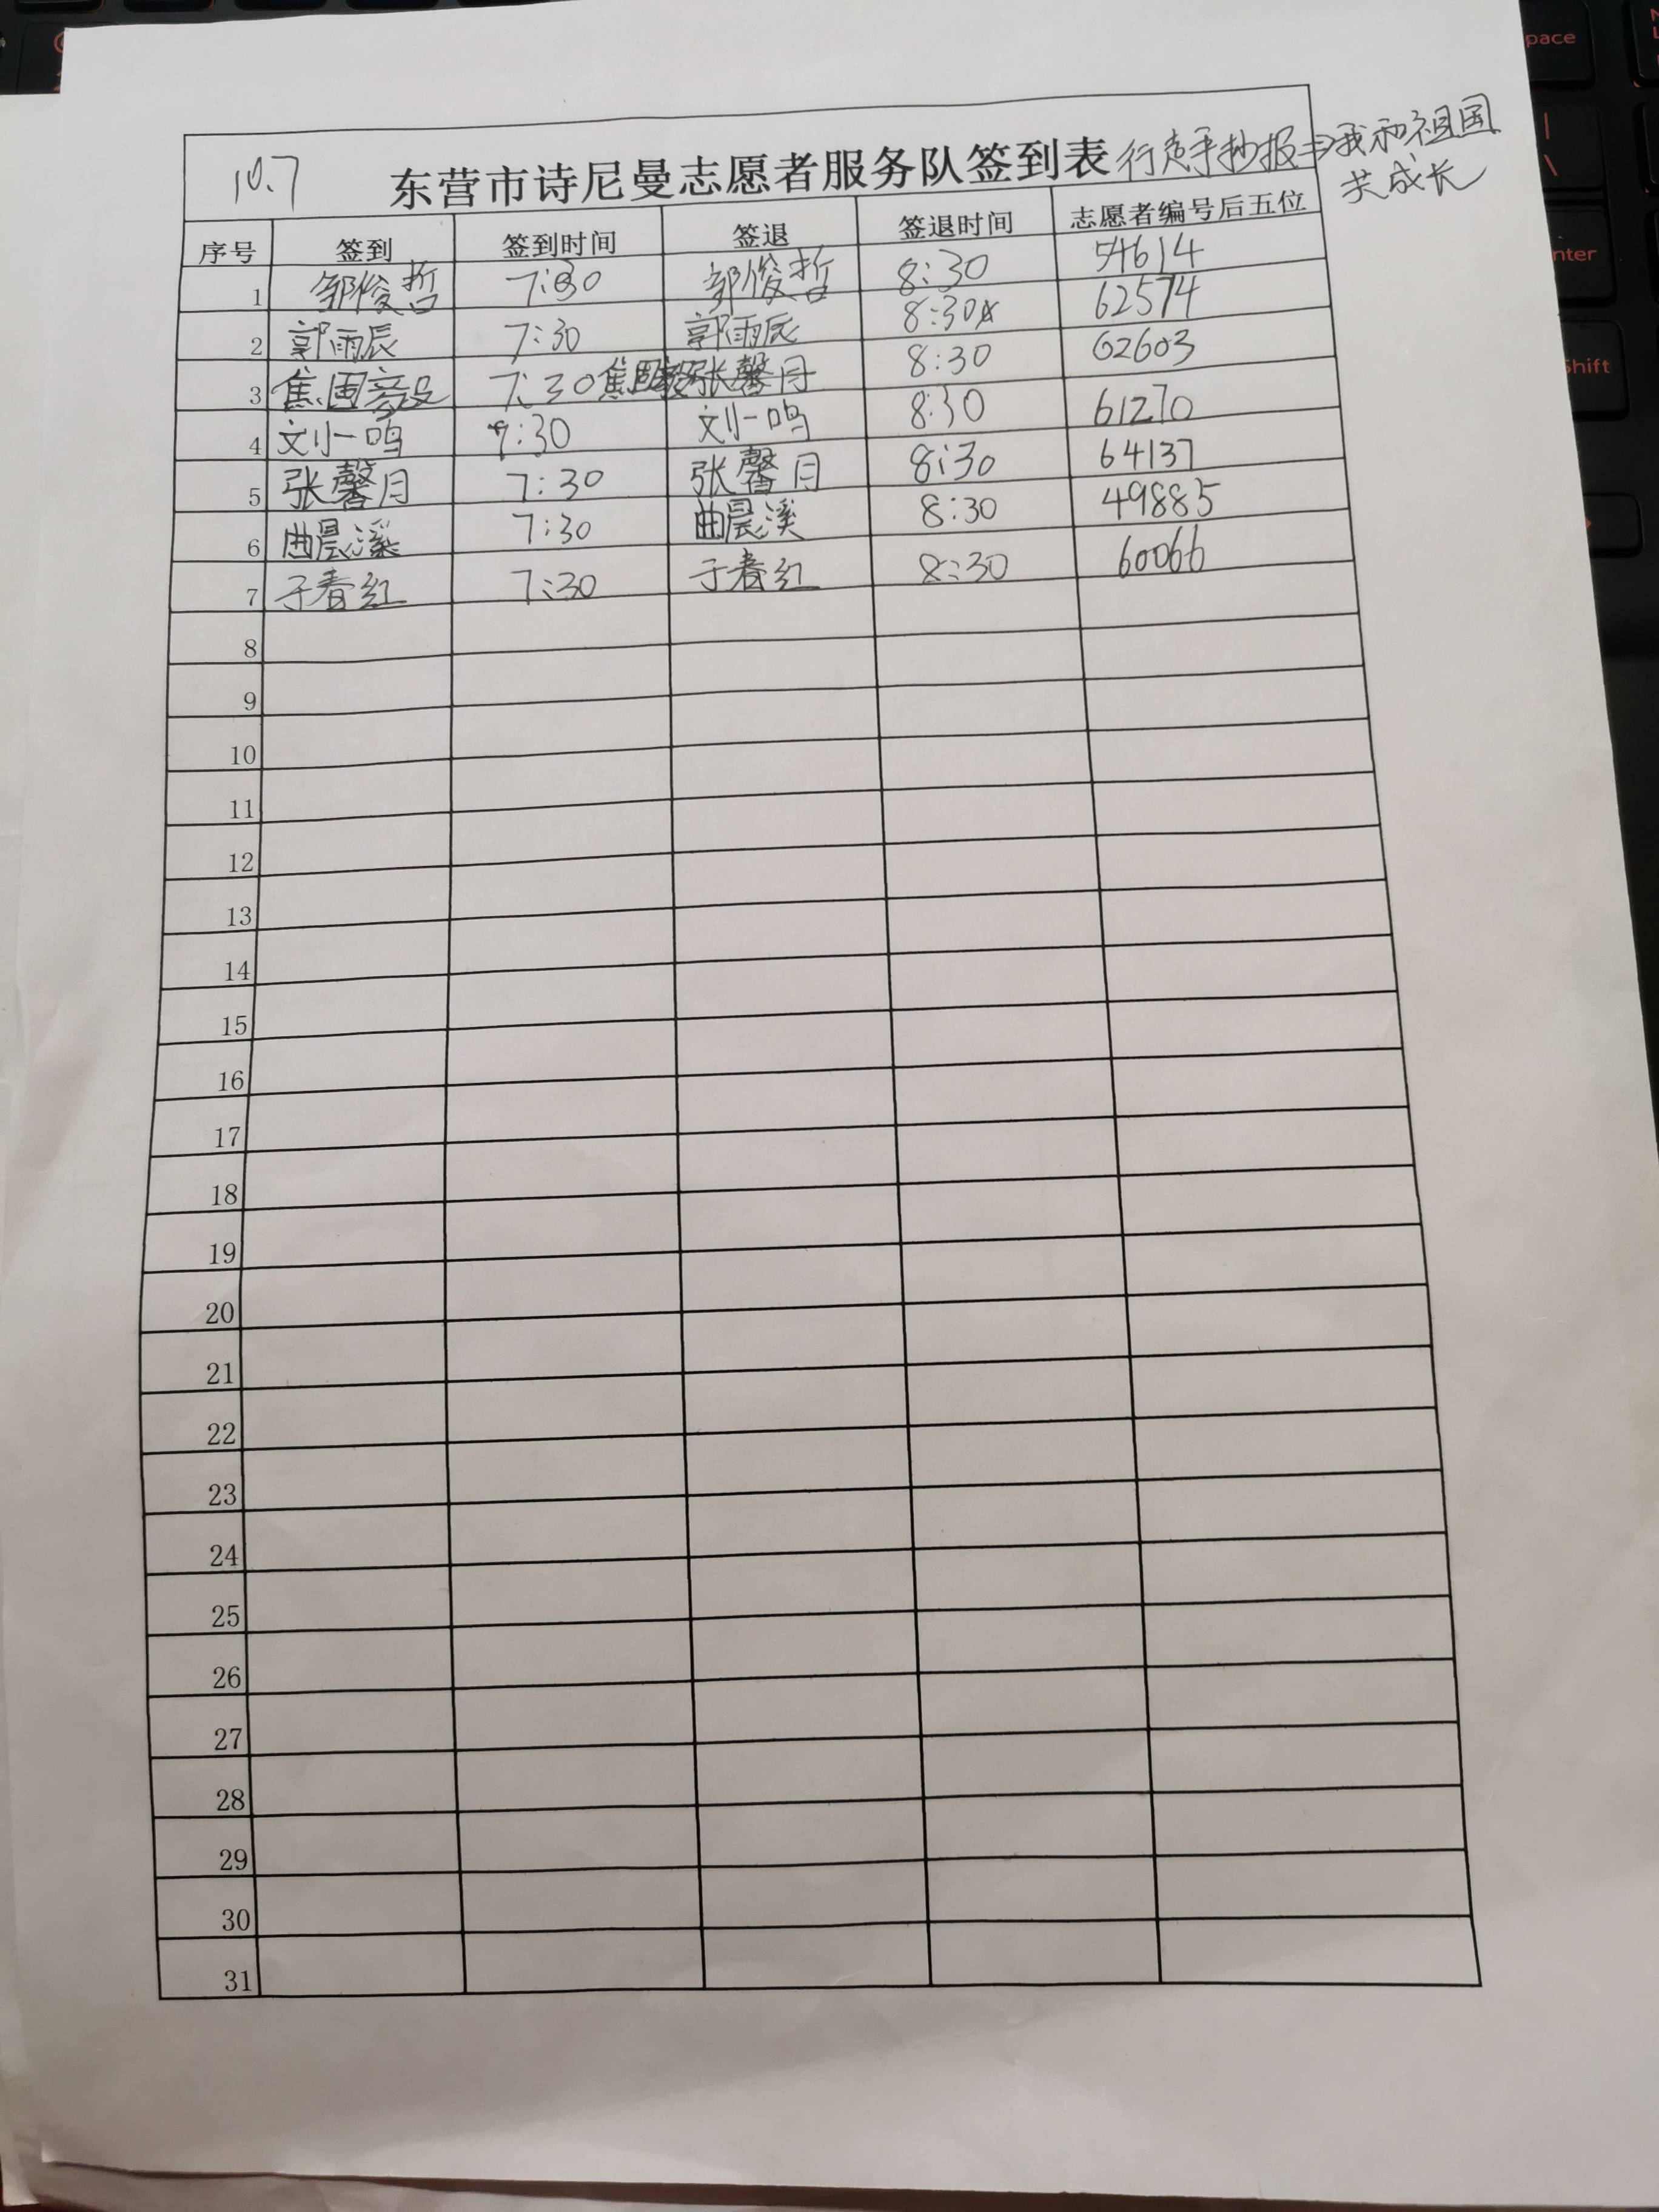 10.7 东营市诗尼曼志愿者服务队签到表 手抄报⇒我和祖国
共成长
序号 签到 签到时间 签退 签退时间 志愿者编号后五位
1 邹俊哲 7:30 邹俊哲 8:30 54614
2 郭雨辰 7:30 郭雨辰 8:30 62574
3 焦 7:30 焦 张馨月 8:30 62603
4 刘一鸣 7:30 刘一鸣 8:30 61270
5 张馨月 7:30 张馨月 8:30 64137
6 曲晨溪 7:30 曲晨溪 8:30 49885
7 于春红 7:30 于春红 8:30 60066
8
9
10
11
12
13
14
15
16
17
18
19
20
21
22
23
24
25
26
27
28
29
30
31
pace
enter
Shift